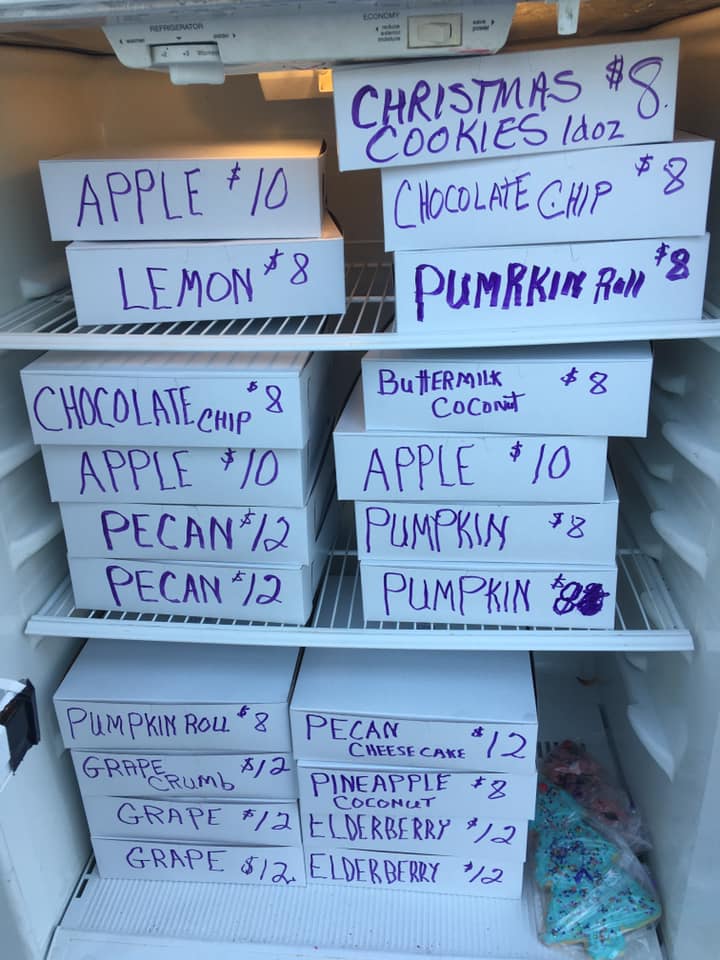 REFRIGERATOR
ECONOMY
CHRISTMAS $8.
COOKIES 1doz
APPLE $10
CHOCOLATE CHIP $8
LEMON $8
PUMPKIN Roll $8
CHOCOLATE CHIP $8
BuTTERMILK $8
COCONUT
APPLE $10
APPLE $10
PECAN $12
PUMPKIN $8
PECAN $12
PUMPKIN $8
PUMPKIN ROLL $8
PECAN $12
CHEESECAKE
GRAPE $12
CRUMb
PINEAPPLE $8
COCONUT
GRAPE $12
ELDERBERRY $12
GRAPE $12.
ELDERBERRY $12